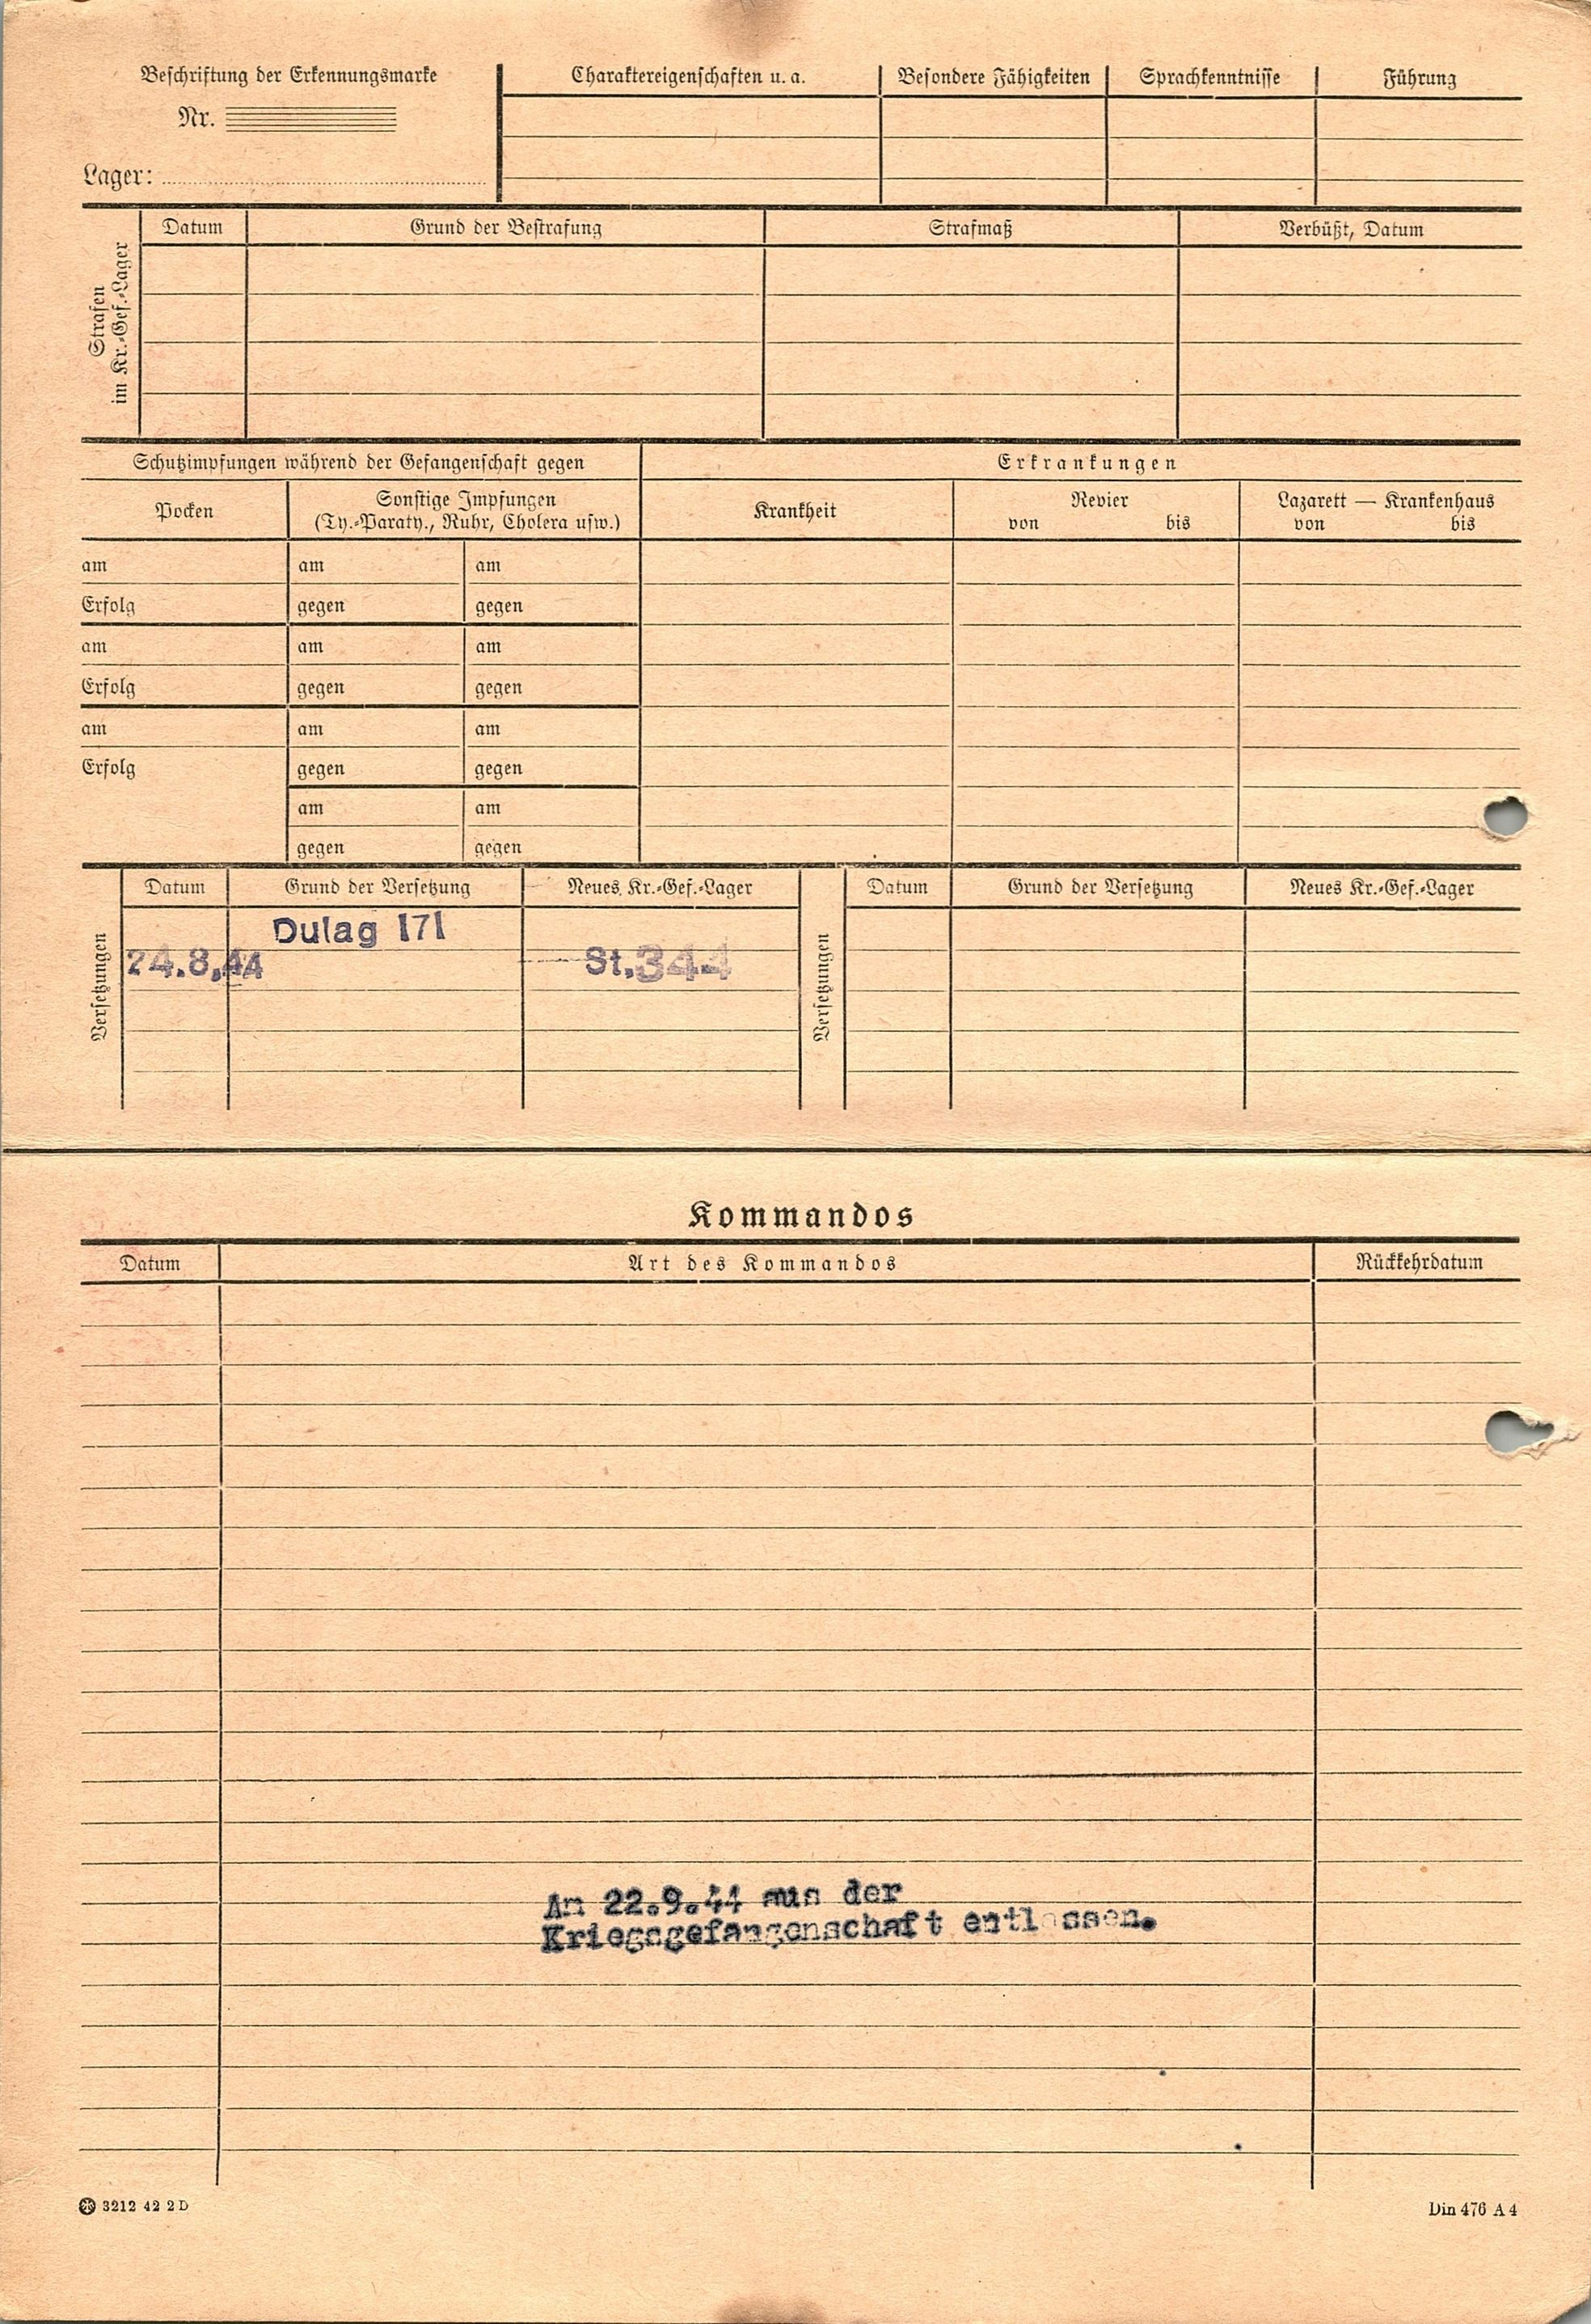 Beschriftung der Erkennungsmarke
Nr.
Lager:
Charaktereigenschaften u. a. Besondere Fähigkeiten Sprachkenntnisse Führung
Strafen
im Kr.-Gef.-Lager
Datum Grund der Bestrafung Strafmaß Verbüßt, Datum
Schutzimpfungen während der Gefangenschaft gegen Erkrankungen
Pocken
Sonstige Impfungen
(Ty.-Paraty., Ruhr, Cholera usw.)
Krankheit
Revier
von bis
Lazarett — Krankenhaus
von bis
am am am
Erfolg gegen gegen
am am am
Erfolg gegen gegen
am am am
Erfolg gegen gegen
am am
gegen gegen
Versetzungen
Datum Grund der Versetzung Neues Kr.-Gef.-Lager
Dulag 171
24.8.44 St.344
Versetzungen
Datum Grund der Versetzung Neues Kr.-Gef.-Lager
Kommandos
Datum Art des Kommandos Rückkehrdatum
Am 22.9.44 aus der
Kriegsgefangenschaft entlassen.
3212 42 2 D
Din 476 A 4